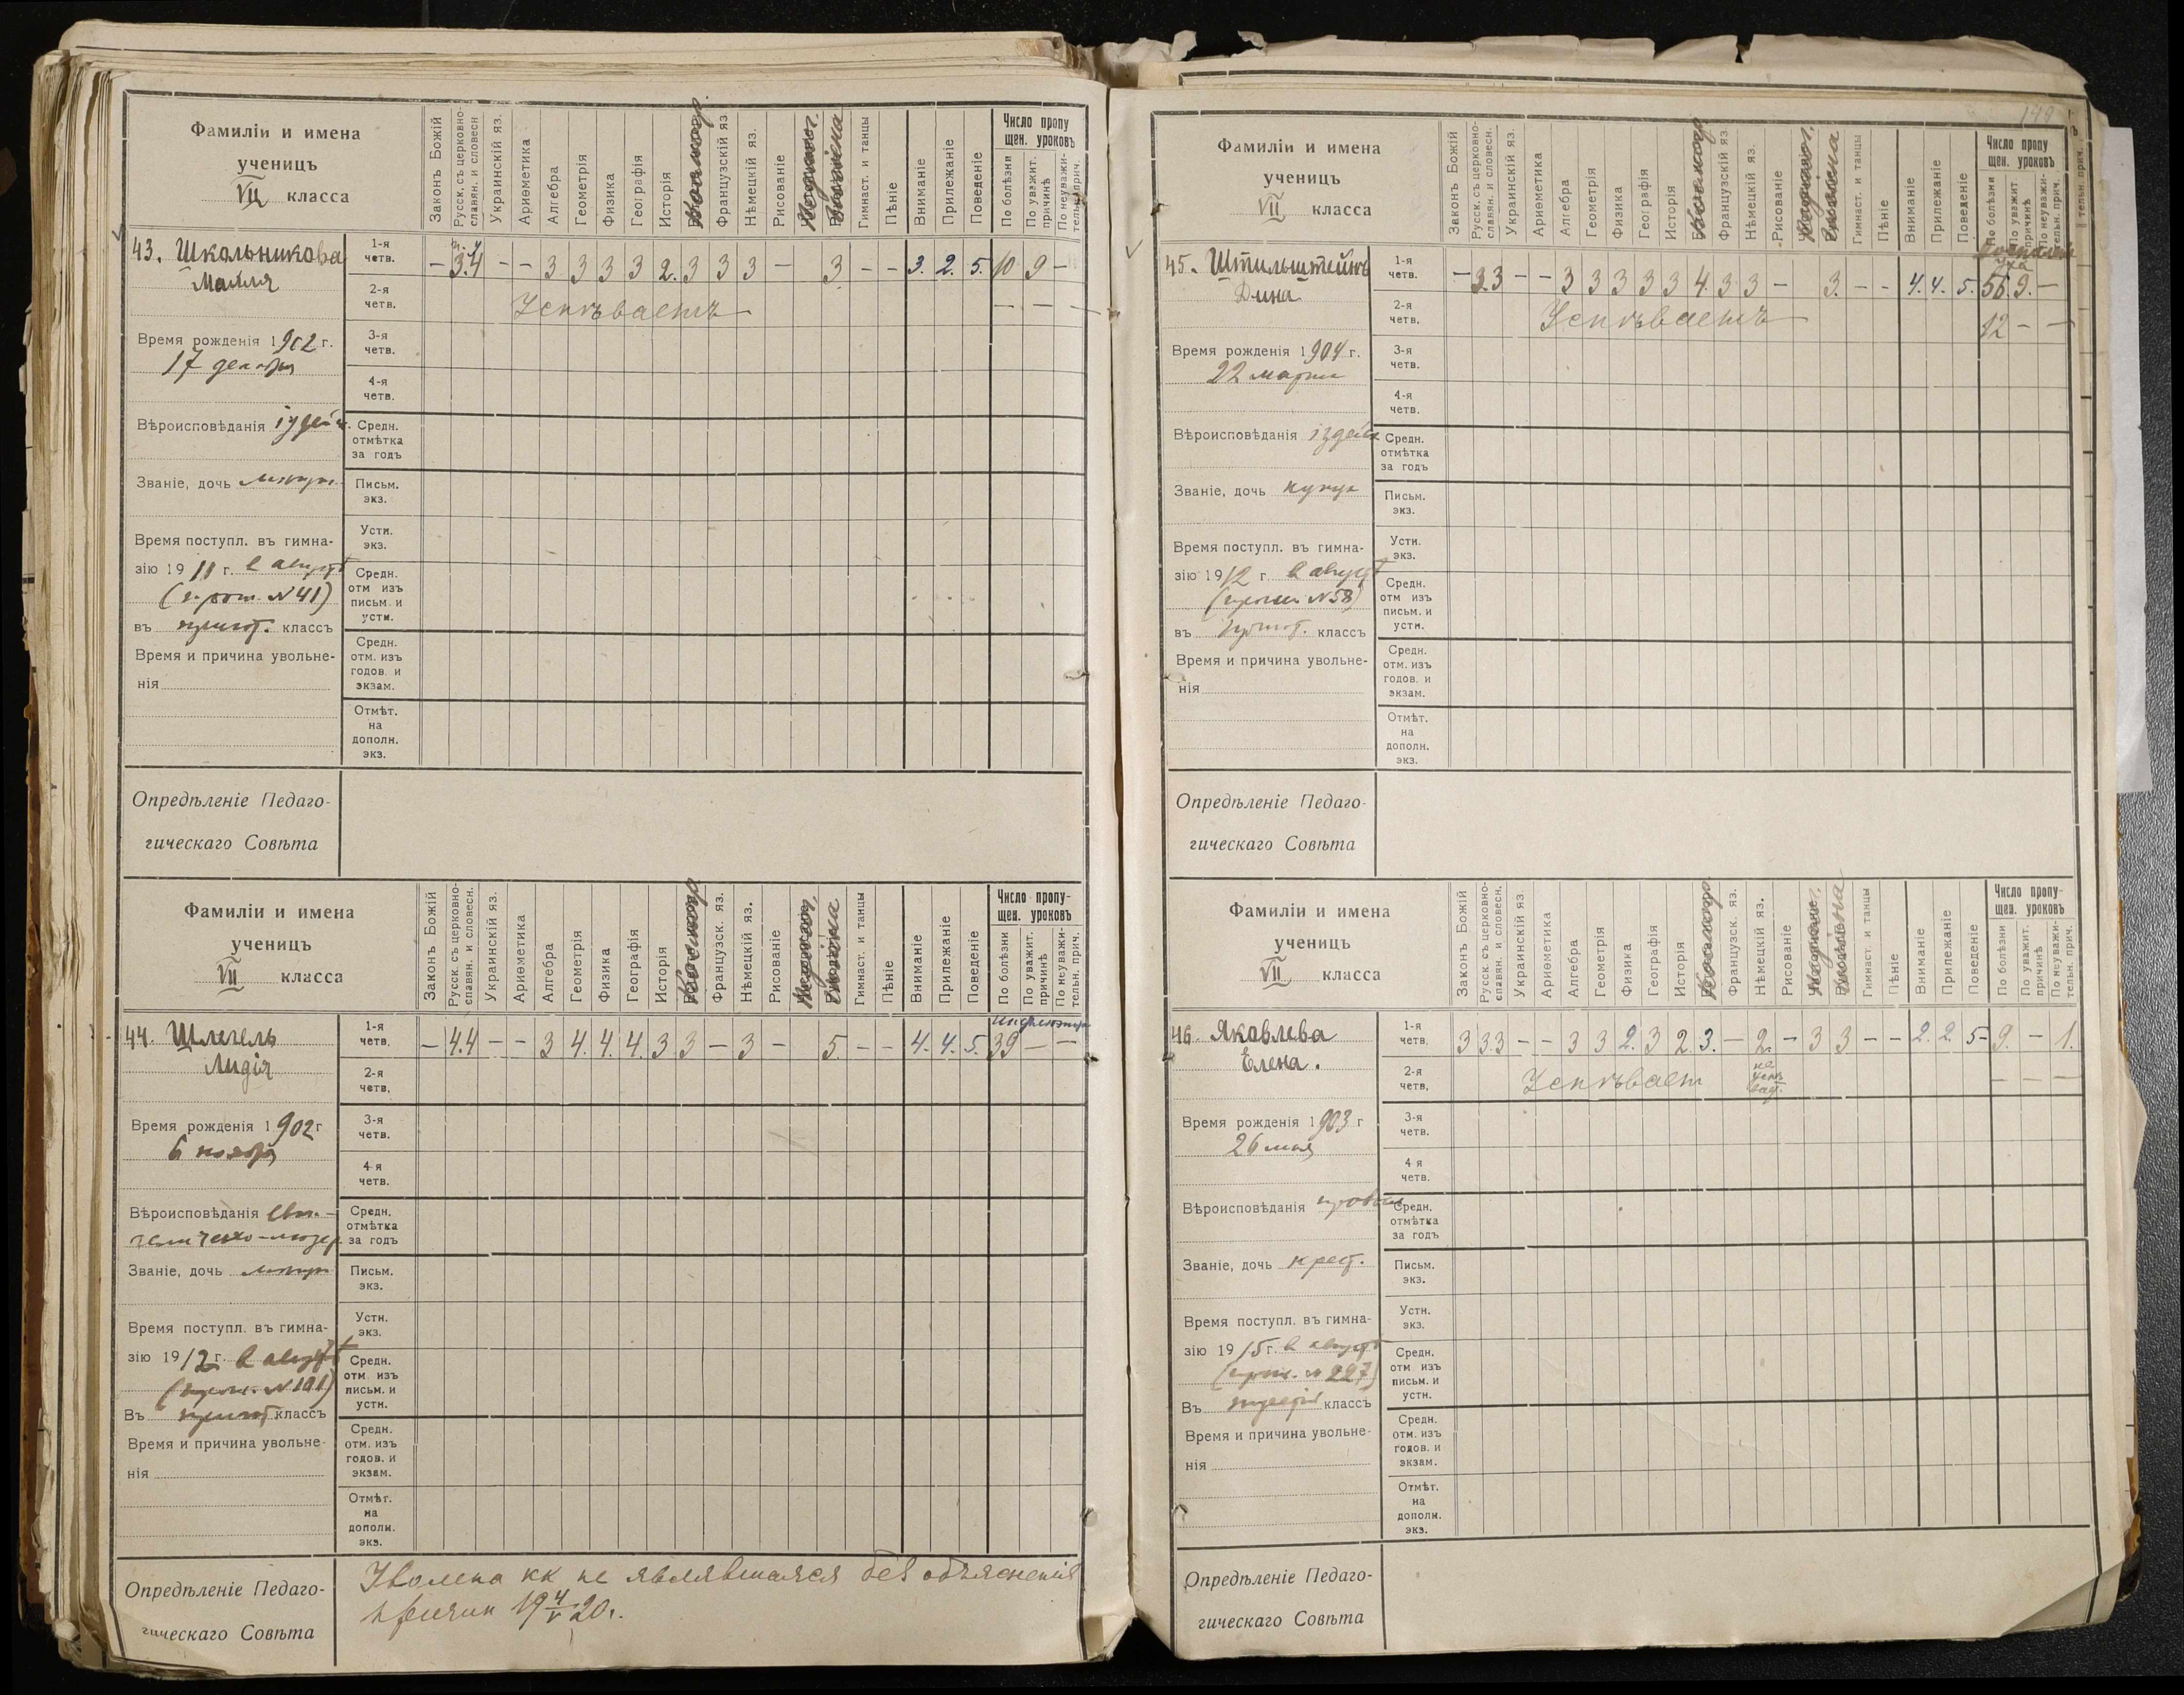 Фамиліи и имена
ученицъ
VII класса
Законъ Божій
Русск. съ церковно-
славян. и словесн
Украинскій яз.
Ариѳметика
Алгебра
Геометрія
Физика
Географія
Исторія
Французскій яз
Нѣмецкій яз.
Рисованіе
Гимнаст. и танцы
Пѣніе
Вниманіе
Прилежаніе
Поведеніе
Число пропу
щен. уроковъ
По болѣзни
По уважит.
причинѣ
По неуважи-
тельн. прич.
43. Школьникова
Время рожденія 1902 г.
17 декабря
Вѣроисповѣданія іудейск.
Званіе, дочь
Время поступл. въ гимна-
зію 19 11 г. в августѣ
(прот. №41)
въ пригот. классъ
Время и причина увольне-
нія
1-я
четв.
– 3.4 – – 3 3 3 3 2. 3 3 3 – 3 – – 3. 2. 5. 10 9 –
2-я
четв.
Успѣваетъ – – –
3-я
четв.
4-я
четв.
Средн.
отмѣтка
за годъ
Письм.
экз.
Устн.
экз.
Средн.
отм изъ
письм. и
устн.
Средн.
отм. изъ
годов. и
экзам.
Отмѣт.
на
дополн.
экз.
Опредѣленіе Педаго-
гическаго Совѣта
Фамиліи и имена
ученицъ
VII класса
Законъ Божій
Русск. съ церковно-
славян. и словесн.
Украинскій яз.
Ариѳметика
Алгебра
Геометрія
Физика
Географія
Исторія
Французск. яз.
Нѣмецкій яз.
Рисованіе
Гимнаст. и танцы
Пѣніе
Вниманіе
Прилежаніе
Поведеніе
Число пропу-
щен. уроковъ
По болѣзни
По уважит.
причинѣ
По неуважи-
тельн. прич.
44. Шлегель
Лидія
Время рожденія 1902 г
6 ноября
Вѣроисповѣданія еван-
гелическо-лютер.
Званіе, дочь
Время поступл. въ гимна-
зію 19 12 г. в августѣ
(прот. №101)
Въ пригот классъ
Время и причина увольне-
нія
1-я
четв.
– 4.4 – – 3 4. 4. 4. 3 3 – 3 – 5. – – 4. 4. 5. 39 – –
2-я
четв.
3-я
четв.
4-я
четв.
Средн.
отмѣтка
за годъ
Письм.
экз.
Устн.
экз.
Средн.
отм. изъ
письм. и
устн.
Средн.
отм. изъ
годов. и
экзам.
Отмѣт.
на
дополн.
экз.
Опредѣленіе Педаго-
гическаго Совѣта
Уволена кк не являвшаяся без объясненія
причин 19 4/V 20 г.
Фамиліи и имена
ученицъ
VII класса
Законъ Божій
Русск. съ церковно-
славян. и словесн.
Украинскій яз.
Ариѳметика
Алгебра
Геометрія
Физика
Географія
Исторія
Французскій яз.
Нѣмецкій яз.
Рисованіе
Гимнаст. и танцы
Пѣніе
Вниманіе
Прилежаніе
Поведеніе
Число пропу
щен. уроковъ
По болѣзни
По уважит
причинѣ
По неуважи-
тельн. прич.
45. Штильштейнъ
Дина
Время рожденія 1904 г.
22 марта
Вѣроисповѣданія іудейск
Званіе, дочь купца
Время поступл. въ гимна-
зію 19 12 г в августѣ
(прот. №58)
въ пригот. классъ
Время и причина увольне-
нія
1-я
четв.
– 3.3 – – 3 3 3 3 3 4. 3 3 – 3. – – 4. 4. 5. 56 9. –
уха
2-я
четв.
Успѣваетъ 12 – –
3-я
четв.
4-я
четв.
Средн.
отмѣтка
за годъ
Письм.
экз.
Устн.
экз.
Средн.
отм изъ
письм. и
устн.
Средн.
отм. изъ
годов. и
экзам.
Отмѣт.
на
дополн.
экз.
Опредѣленіе Педаго-
гическаго Совѣта
Фамиліи и имена
ученицъ
VII класса
Законъ Божій
Русск. съ церковно-
славян. и словесн.
Украинскій яз
Ариѳметика
Алгебра
Геометрія
Физика
Географія
Исторія
Французск. яз.
Нѣмецкій яз.
Рисованіе
Гимнаст. и танцы
Пѣніе
Вниманіе
Прилежаніе
Поведеніе
Число пропу-
щен. уроковъ
По болѣзни
По уважит.
причинѣ
По неуважи-
тельн. прич.
46. Яковлева
Елена.
Время рожденія 1903 г
26 мая
Вѣроисповѣданія
Званіе, дочь крест.
Время поступл. въ гимна-
зію 19 15 г. в августѣ
(прот. №227)
Въ третій классъ
Время и причина увольне-
нія
1-я
четв.
3 3.3 – – 3 3 2. 3 2. 3. – 2. – 3 3 – – 2. 2. 5 – 9. – 1.
2-я
четв.
Успѣвает не
успѣ
вает. – – –
3-я
четв.
4 я
четв.
Средн.
отмѣтка
за годъ
Письм.
экз.
Устн.
экз.
Средн.
отм изъ
письм. и
устн.
Средн.
отм. изъ
годов. и
экзам.
Отмѣт.
на
дополн.
экз.
Опредѣленіе Педаго-
гическаго Совѣта